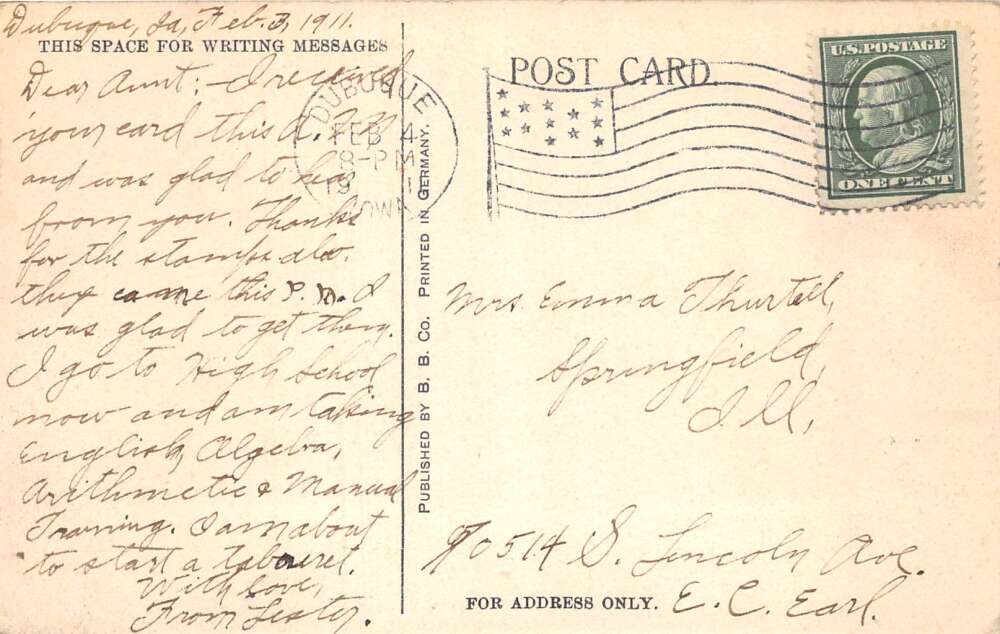 Dubuque, Ia, Feb. 3, 1911.
THIS SPACE FOR WRITING MESSAGES
Dear Aunt; - I received
your card this A. M.
and was glad to hear
from you. Thanks
for the stamps also.
they came this P. M. I
was glad to get them.
I go to High School
now and am taking
English, Algebra,
Arithmetic & Manual
Training. I am about
to start a tabouret.
With love,
From Lester.
PUBLISHED BY B. B. CO. PRINTED IN GERMANY.
POST CARD
DUBUQUE
FEB 4
8-PM
19 1
IOWA
U.S. POSTAGE
ONE CENT
Mrs. Emma Thurtell,
Springfield,
Ill,
514 S. Lincoln Ave.
FOR ADDRESS ONLY.
E. C. Earl.